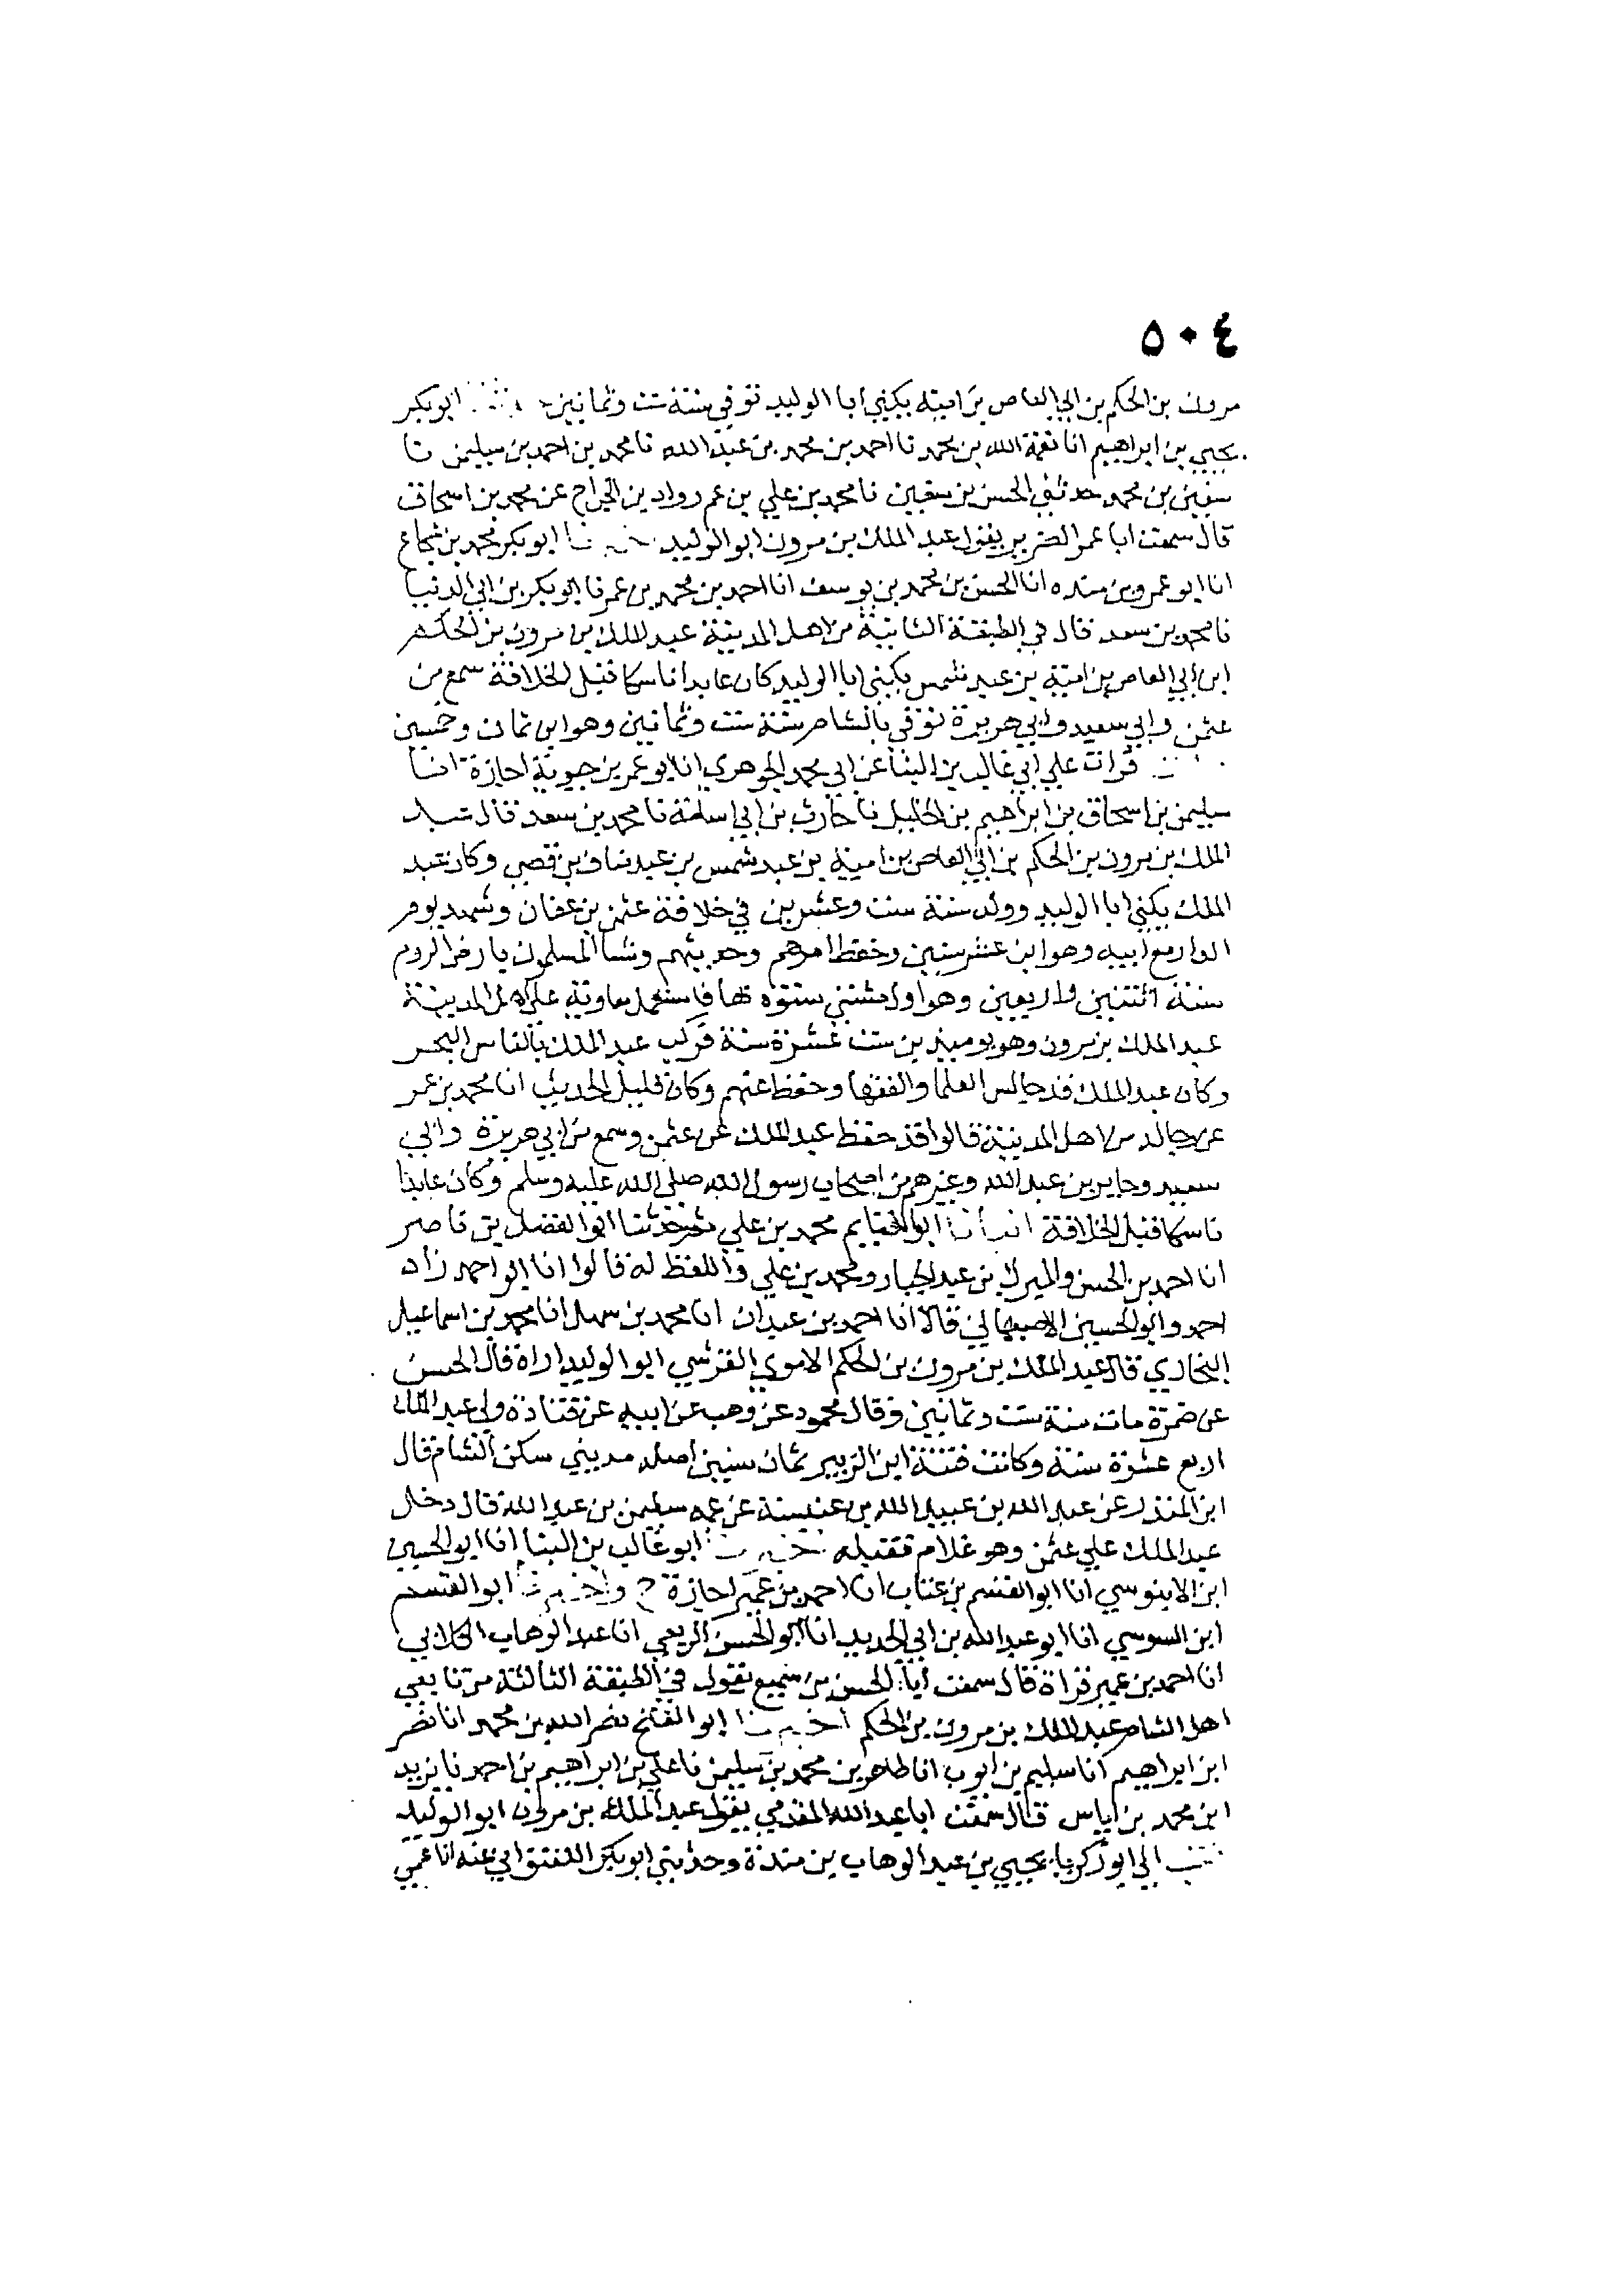 ٥٠٤
مرون بن الحكم بن ابي العاص بن امية يكني ابا الوليد توفي سنة ست وثمانين ابو بكر
يحيي بن ابراهيم انا نعمة الله بن محمد نا احمد بن محمد بن عبد الله نا محمد بن احمد بن سليمن نا
سفين بن محمد حدثني الحسن بن سفين نا محمد بن علي بن عم رواد بن الجراح عن محمد بن اسحاق
قال سمعت ابا عمر الضرير يقول عبد الملك بن مرون ابو الوليد ابو بكر محمد بن شجاع
انا ابو عمرو بن منده انا الحسن بن محمد بن يوسف انا احمد بن محمد بن عمر نا ابو بكر بن ابي الدنيا
نا محمد بن سعد قال في الطبقة الثانية من اهل المدينة عبد الملك بن مرون بن الحكم
ابن ابي العاص بن امية بن عبد شمس يكني ابا الوليد كان عابدا ناسكا قبل الخلافة سمع من
عثمن وابي سعيد وابي هريرة توفي بالشام سنة ست وثمانين وهو ابن ثمان وخمسين
قرات علي ابي غالب بن البنا عن ابي محمد الجوهري انا ابو عمر بن حيوية اجازة انا
سليمن بن اسحاق بن ابراهيم بن الخليل نا حارث بن ابي اسامة نا محمد بن سعد قال عبد
الملك بن مرون بن الحكم بن ابي العاص بن امية بن عبد شمس بن عبد مناف بن قصي وكان عبد
الملك يكني ابا الوليد وولد سنة ست وعشرين في خلافة عثمن بن عفان وشهد يوم
الدار مع ابيه وهو ابن عشر سنين وحفظ امرهم وحديثهم وشتا المسلمون بارض الروم
سنة اثنتين واربعين وهو اول مشتي شتوه بها فاستعمل معاوية علي اهل المدينة
عبد الملك بن مرون وهو يوميذ بن ست عشرة سنة فركب عبد الملك بالناس البحر
وكان عبد الملك قد جالس العلما والفقها وحفظ عنهم وكان قليل الحديث انا محمد بن عمر
عن رجال من اهل المدينة قالوا قد حفظ عبد الملك عن عثمن وسمع من ابي هريرة وابي
سعيد وجابر بن عبد الله وغيرهم من اصحاب رسول الله صلي الله عليه وسلم وكان عابدا
ناسكا قبل الخلافة انبأنا ابو الغنايم محمد بن علي ثم حدثنا ابو الفضل بن ناصر
انا احمد بن الحسن والمبرك بن عبد الجبار ومحمد بن علي واللفظ له قالوا انا ابو احمد زاد
احمد وابو الحسين الاصبهاني قالا انا احمد بن عبدان انا محمد بن سهل انا محمد بن اسماعيل
البخاري قال عبد الملك بن مرون بن الحكم الاموي القرشي ابو الوليد اراه قال الحسن
عن ضمرة مات سنة ست وثمانين وقال محمود عن وهب عن ابيه عن قتادة ولي عبد الملك
اربع عشرة سنة وكانت فتنة ابن الزبير ثمان سنين اصله مديني سكن الشام قال
ابن المنذر عن عبد الله بن عبيد الله بن عنبسة عن عمه سليمن بن عبد الله قال دخل
عبد الملك علي عثمن وهو غلام فقبله ابو غالب بن البنا انا ابو الحسين
ابن الابنوسي انا ابو القسم بن عتاب انا احمد بن عمير اجازة ح واخبرنا ابو القسم
ابن السوسي انا ابو عبد الله بن ابي الحديد انا ابو الحسن الربعي انا عبد الوهاب الكلابي
انا احمد بن عمير قراة قال سمعت ابا الحسن بن سميع يقول في الطبقة الثالثة من تابعي
اهل الشام عبد الملك بن مرون بن الحكم اخبرنا ابو الفتح نصر الله بن محمد انا نصر
ابن ابراهيم انا سليم بن ايوب انا طاهر بن محمد بن سليمن نا علي بن ابراهيم بن احمد نا يزيد
ابن محمد بن اياس قال سمعت ابا عبد الله المقدمي يقول عبد الملك بن مرون ابو الوليد
كتب الي ابو زكريا يحيي بن عبد الوهاب بن مندة وحدثني ابو بكر اللفتواني عنه انا عمي